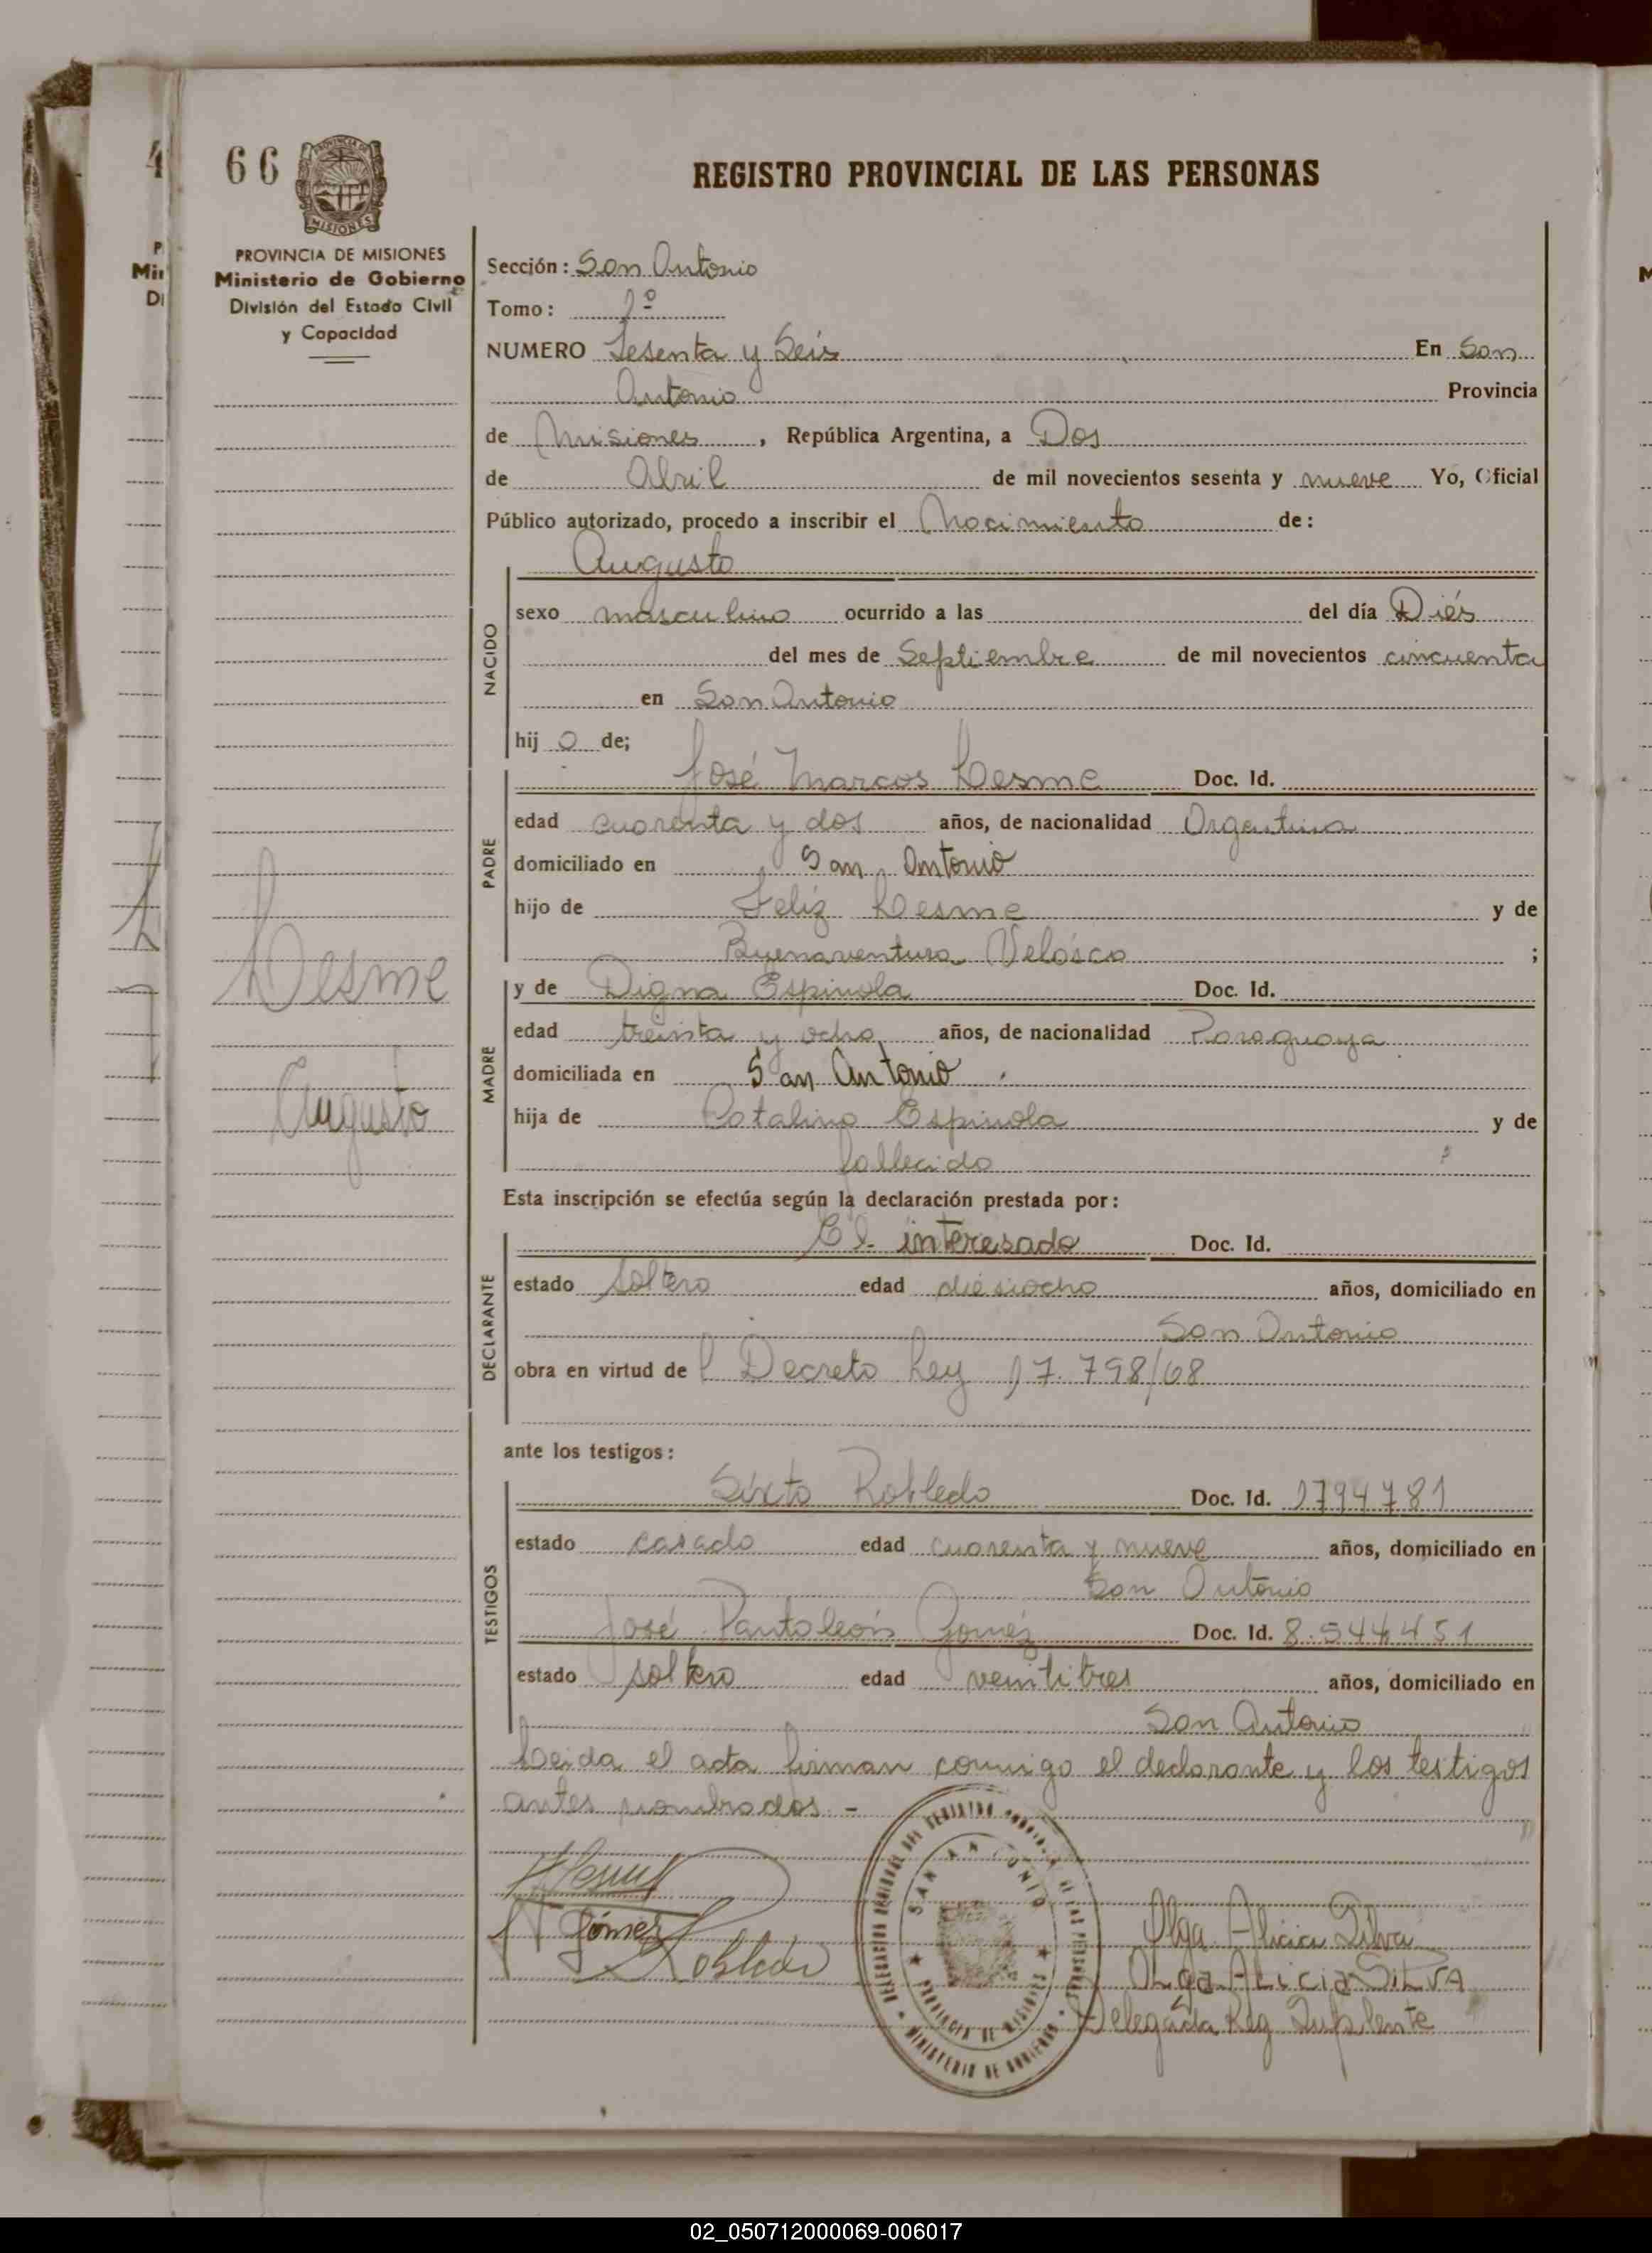 66
PROVINCIA DE MISIONES
Ministerio de Gobierno
División del Estado Civil
y Capacidad
REGISTRO PROVINCIAL DE LAS PERSONAS
Sección: San Antonio
Tomo: 1º
NUMERO Sesenta y Seis En San
Antonio Provincia
de Misiones, República Argentina, a Dos
de Abril de mil novecientos sesenta y nueve Yo, Oficial
Público autorizado, procedo a inscribir el Nacimiento de:
Augusto
NACIDO
sexo masculino ocurrido a las del día Diés
del mes de Septiembre de mil novecientos cincuenta
en San Antonio
hij o de;
José Marcos Lesme Doc. Id.
PADRE
edad cuarenta y dos años, de nacionalidad Argentina
domiciliado en San Antonio
hijo de Feliz Lesme y de
Buenaventura Velasco ;
y de Digna Espinola Doc. Id.
MADRE
edad treinta y ocho años, de nacionalidad Paraguaya
domiciliada en San Antonio
hija de Catalino Espinola y de
fallecido
Esta inscripción se efectúa según la declaración prestada por:
El interesado Doc. Id.
DECLARANTE
estado soltero edad diesiocho años, domiciliado en
San Antonio
obra en virtud de l Decreto Ley 17.798/68
ante los testigos:
Sixto Robledo Doc. Id. 1794781
TESTIGOS
estado casado edad cuarenta y nueve años, domiciliado en
San Antonio
José Pantaleón Gomez Doc. Id. 8.544451
estado soltero edad veintitres años, domiciliado en
San Antonio
Leida el acta firman conmigo el declarante y los testigos
antes nombrados.-
Lesme
Augusto
Gómez
Robledo
SAN ANTONIO
PROVINCIA DE MISIONES
MINISTERIO DE GOBIERNO
Olga Alicia Silva
OLga ALiciA SiLVA
Delegada Reg Suplente
02_050712000069-006017